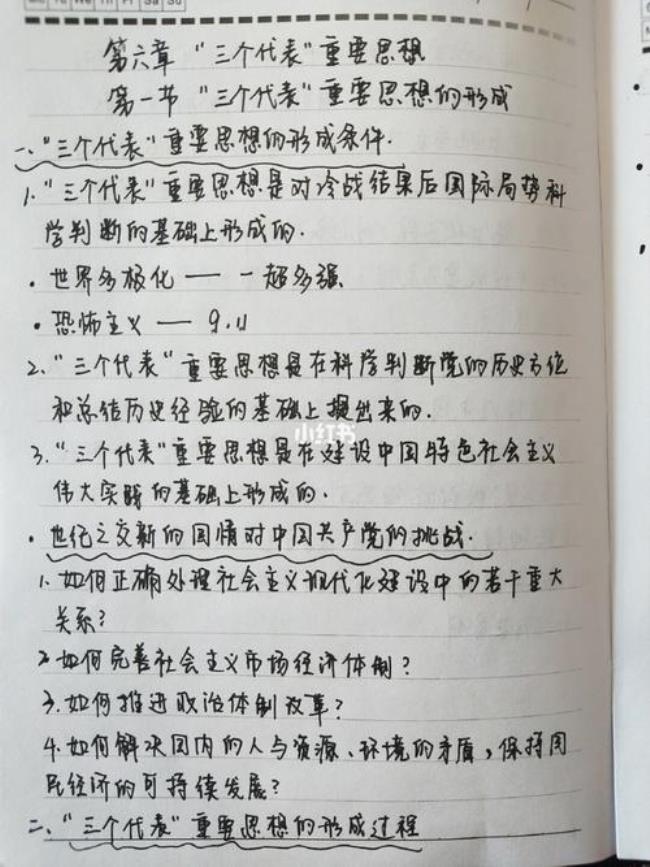 第六章 "三个代表"重要思想
第一节 "三个代表"重要思想的形成
一、"三个代表"重要思想的形成条件.
1."三个代表"重要思想是对冷战结果后国际局势科
学判断的基础上形成的.
·世界多极化 —— 一超多强.
·恐怖主义 —— 9.11
2."三个代表"重要思想是在科学判断党的历史方位
和总结历史经验的基础上提出来的.
小红书
3."三个代表"重要思想是在建设中国特色社会主义
伟大实践的基础上形成的.
·世纪之交新的国情对中国共产党的挑战.
1.如何正确处理社会主义现代化建设中的若干重大
关系?
2.如何完善社会主义市场经济体制?
3.如何推进政治体制改革?
4.如何解决国内的人与资源、环境的矛盾,保持国
民经济的可持续发展?
二、"三个代表"重要思想的形成过程